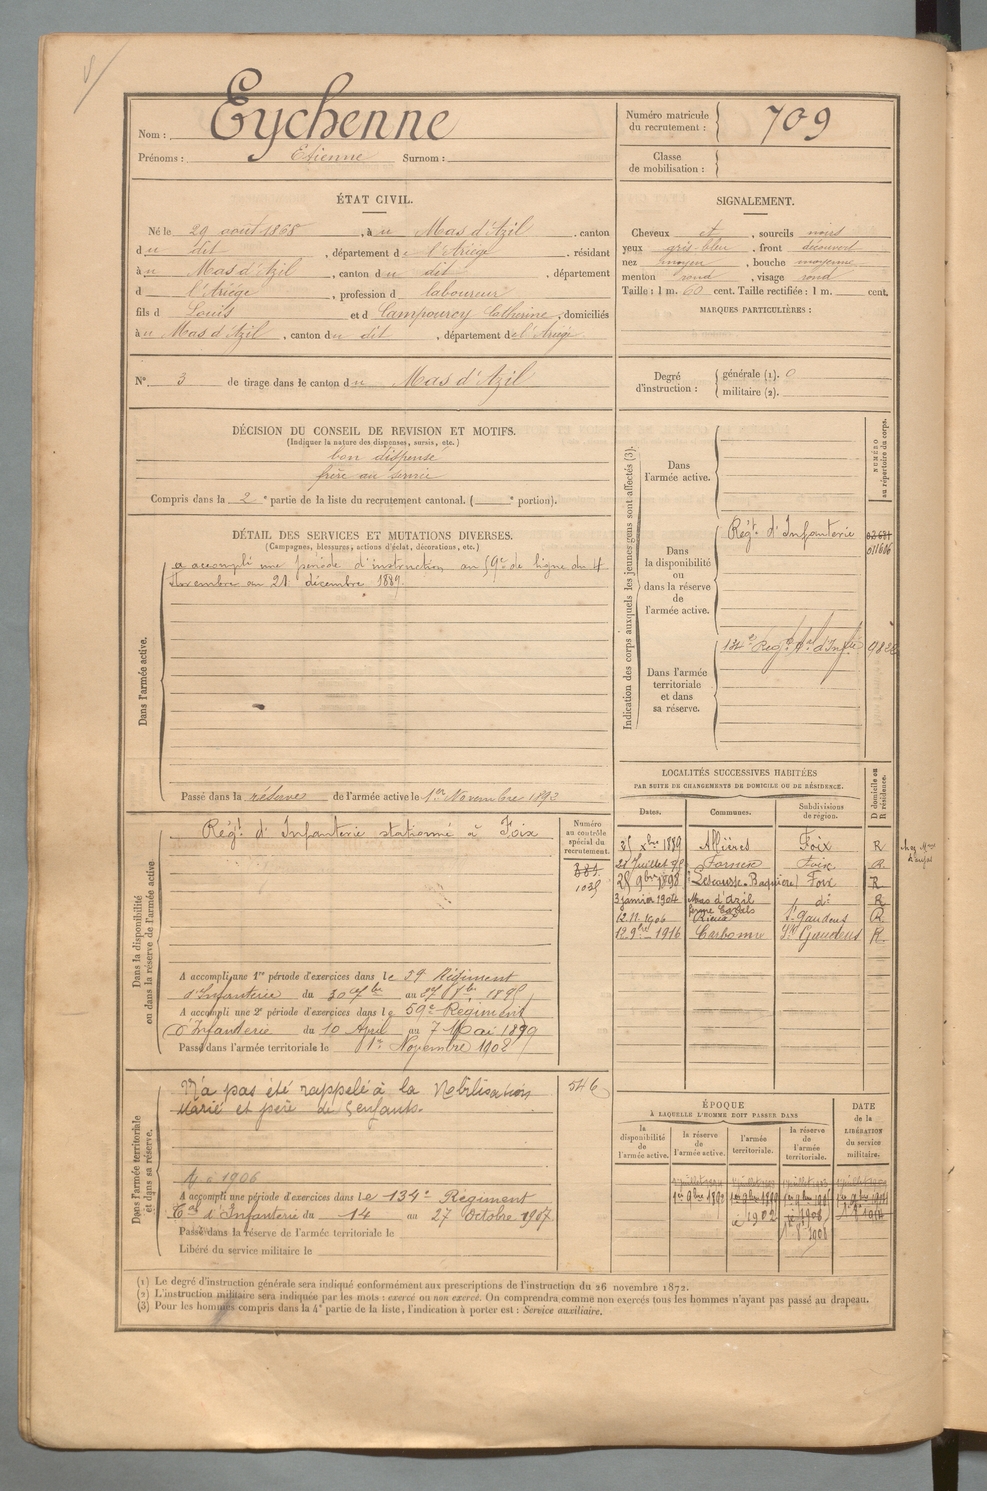 Nom : Eychenne
Prénoms : Etienne Surnom :
Numéro matricule
du recrutement : 709
Classe
de mobilisation :
ÉTAT CIVIL.
Né le 29 août 1868, à u Mas d'Azil, canton
d u dit, département de l'Ariège, résidant
à u Mas d'Azil, canton d u dit, département
d l'Ariège, profession d laboureur
fils d Louis et d Campourcy Catherine, domiciliés
à u Mas d'Azil, canton du dit, département de l'Ariège
N° 3 de tirage dans le canton du Mas d'Azil
SIGNALEMENT.
Cheveux et, sourcils noirs
yeux gris-bleu, front découvert
nez moyen, bouche moyenne
menton rond, visage rond
Taille : 1 m. 60 cent. Taille rectifiée : 1 m. cent.
MARQUES PARTICULIÈRES :
Degré
d'instruction :
générale (1). 0
militaire (2).
DÉCISION DU CONSEIL DE REVISION ET MOTIFS.
(Indiquer la nature des dispenses, sursis, etc.)
bon dispensé
frère au service
Compris dans la 2e partie de la liste du recrutement cantonal. ( e portion).
DÉTAIL DES SERVICES ET MUTATIONS DIVERSES.
(Campagnes, blessures, actions d'éclat, décorations, etc.)
Dans l'armée active.
a accompli une période d'instruction au 59e de ligne du 4
Novembre au 21 décembre 1889.
Passé dans la réserve de l'armée active le 1er Novembre 1892
Indication des corps auxquels les jeunes gens sont affectés (3).
NUMÉRO
au répertoire du corps.
Dans
l'armée active.
Dans
la disponibilité
ou
dans la réserve
de
l'armée active.
Régt. d'Infanterie
Dans l'armée
territoriale
et dans
sa réserve.
134e Régt tal d'Inftie
Dans la disponibilité
ou dans la réserve de l'armée active.
Régt. d'Infanterie stationné à Foix
Numéro
au contrôle
spécial du
recrutement.
381
1035
A accompli une 1re période d'exercices dans le 59 Régiment
d'Infanterie du 30 7bre au 27 8bre 1895
A accompli une 2e période d'exercices dans le 59e Régiment
d'Infanterie du 10 April au 7 Mai 1899
Passé dans l'armée territoriale le 1er Novembre 1902
LOCALITÉS SUCCESSIVES HABITÉES
PAR SUITE DE CHANGEMENTS DE DOMICILE OU DE RÉSIDENCE.
D domicile ou
R résidence.
Dates. Communes. Subdivisions
de région.
Xbre 1889 Allières Foix R
21 Juillet 95 Fornex Foix R
25 9bre 1898 Lescousse Foix R
3 janvier 1904 Mas d'Azil do R
12.11.1906 Rieux St Gaudens R
12 9bre 1916 Carbonne St Gaudens R
Dans l'armée territoriale
et dans sa réserve.
N'a pas été rappelé à la Mobilisation
Marié et père de 5 enfants.
546
1906
A accompli une période d'exercices dans le 134e Régiment
Tal d'Infanterie du 14 au 27 Octobre 1907
Passé dans la réserve de l'armée territoriale le
Libéré du service militaire le
ÉPOQUE
À LAQUELLE L'HOMME DOIT PASSER DANS
la
disponibilité
de
l'armée active.
la réserve
de
l'armée active.
l'armée
territoriale.
la réserve
de
l'armée
territoriale.
DATE
de la
LIBÉRATION
du service
militaire.
1er 9bre 1892 1er 9bre 1899
1902 1908
(1) Le degré d'instruction générale sera indiqué conformément aux prescriptions de l'instruction du 26 novembre 1872.
(2) L'instruction militaire sera indiquée par les mots : exercé ou non exercé. On comprendra comme non exercés tous les hommes n'ayant pas passé au drapeau.
(3) Pour les hommes compris dans la 4e partie de la liste, l'indication à porter est : Service auxiliaire.